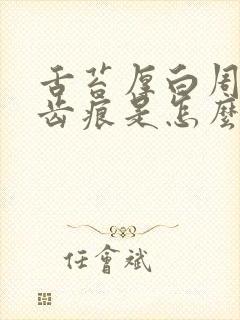 舌苔厚白周
齿痕是怎麼
任會斌